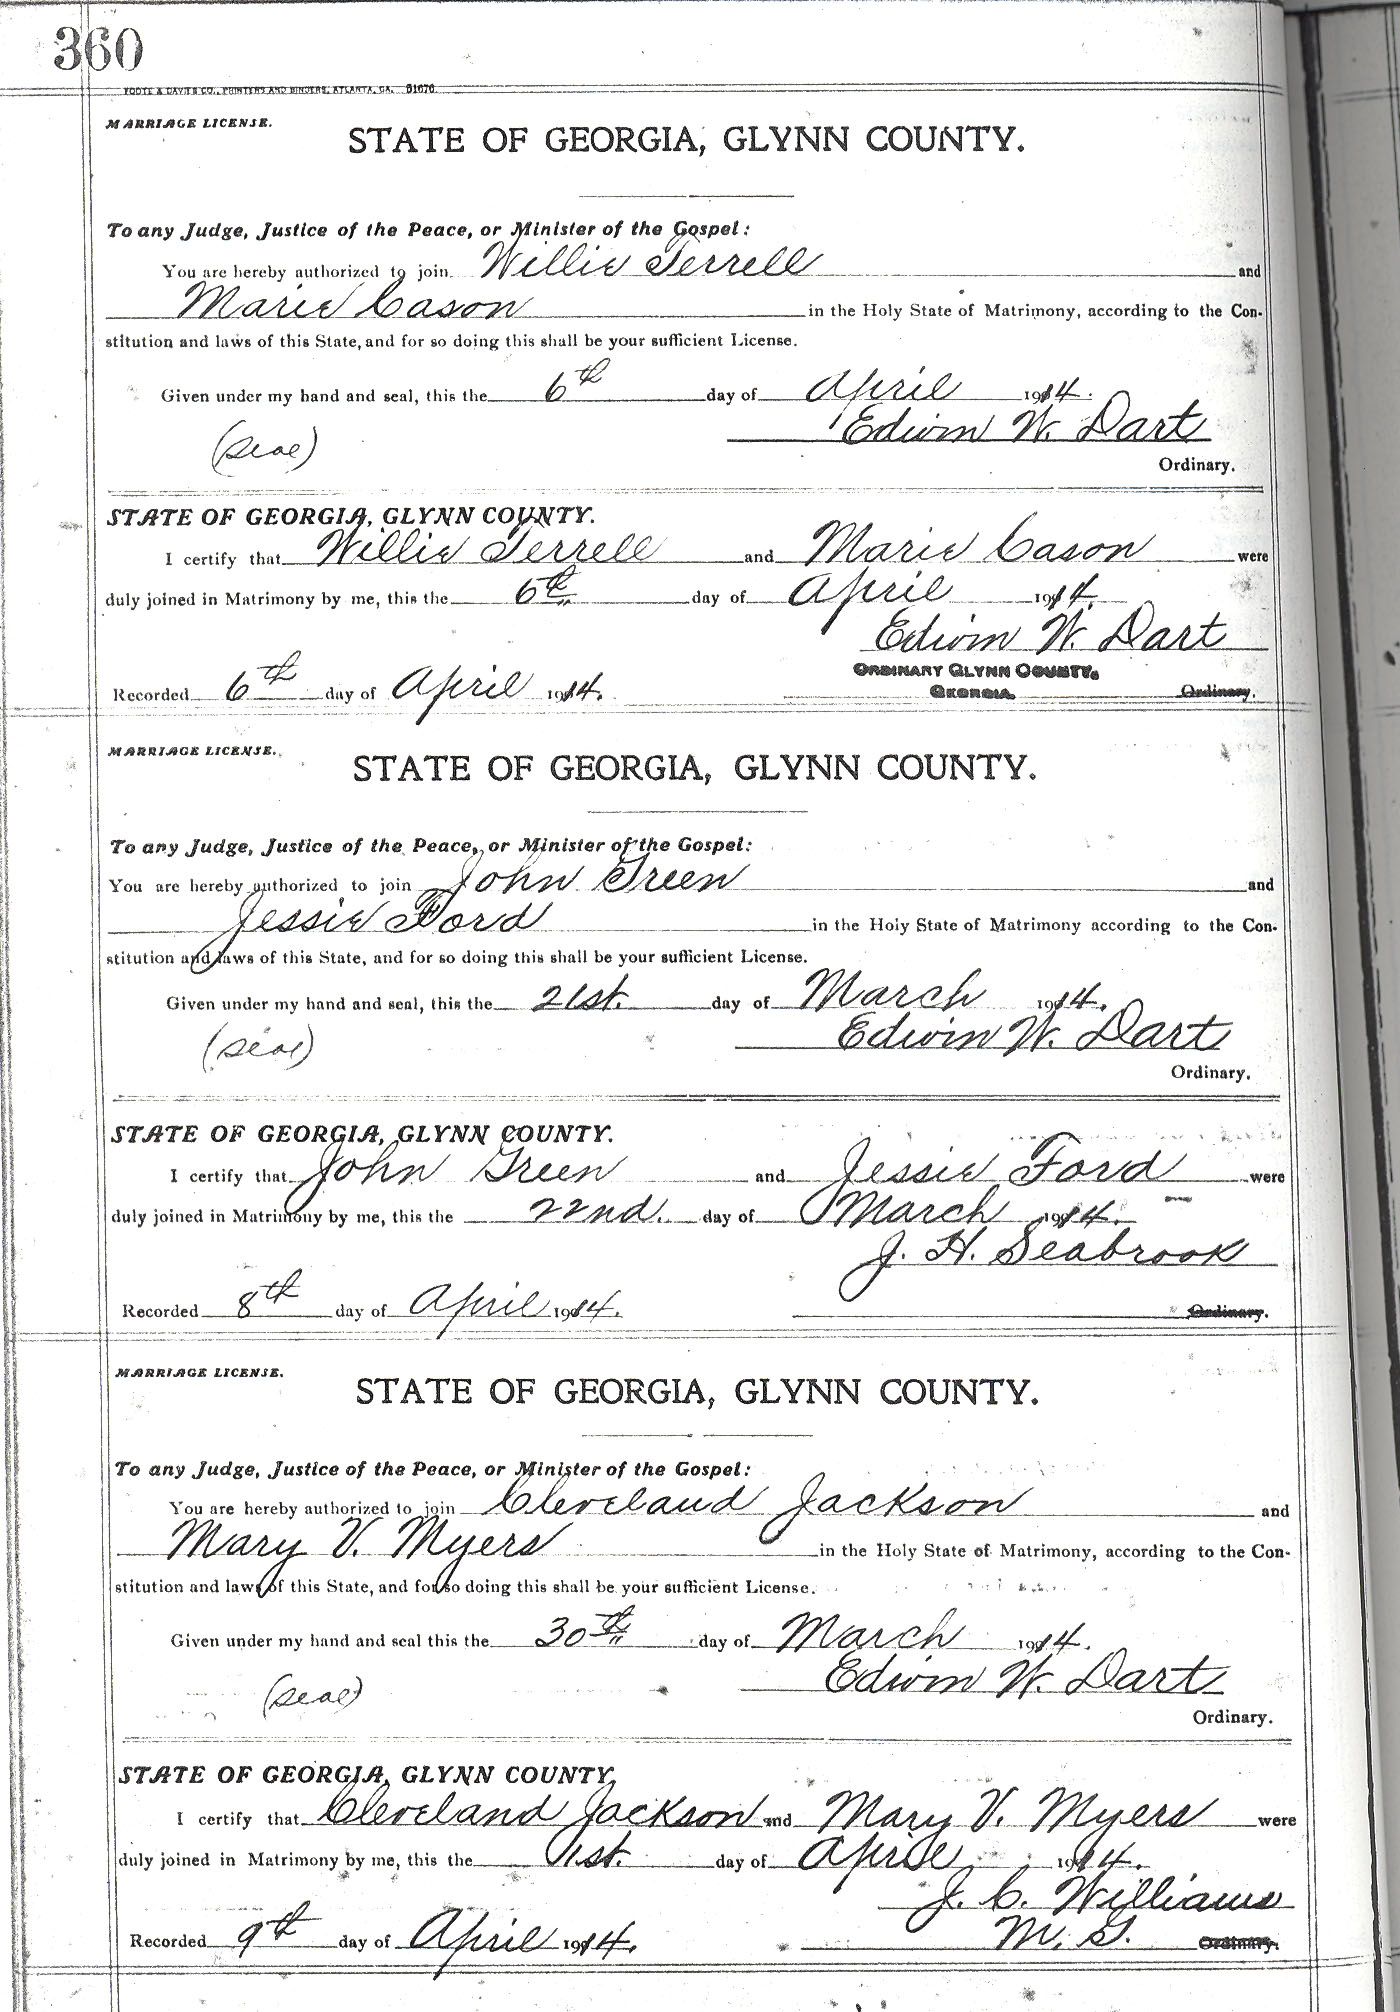 360
FOOTE & DAVIES CO., PRINTERS AND BINDERS, ATLANTA, GA. 51676
MARRIAGE LICENSE.
STATE OF GEORGIA, GLYNN COUNTY.
To any Judge, Justice of the Peace, or Minister of the Gospel:
You are hereby authorized to join Willie Terrell and
Marie Cason in the Holy State of Matrimony, according to the Con-
stitution and laws of this State, and for so doing this shall be your sufficient License.
Given under my hand and seal, this the 6th day of April 1914.
Edwin W. Dart
(seal)
Ordinary.
STATE OF GEORGIA, GLYNN COUNTY.
I certify that Willie Terrell and Marie Cason were
duly joined in Matrimony by me, this the 6th day of April 1914.
Edwin W. Dart
ORDINARY GLYNN COUNTY,
Recorded 6th day of April 1914. GEORGIA. Ordinary.
MARRIAGE LICENSE.
STATE OF GEORGIA, GLYNN COUNTY.
To any Judge, Justice of the Peace, or Minister of the Gospel:
You are hereby authorized to join John Green and
Jessie Ford in the Holy State of Matrimony according to the Con-
stitution and laws of this State, and for so doing this shall be your sufficient License.
Given under my hand and seal, this the 21st. day of March 1914.
(seal) Edwin W. Dart
Ordinary.
STATE OF GEORGIA, GLYNN COUNTY.
I certify that John Green and Jessie Ford were
duly joined in Matrimony by me, this the 22nd. day of March 1914.
J. H. Seabrook
Recorded 8th day of April 1914. Ordinary.
MARRIAGE LICENSE.
STATE OF GEORGIA, GLYNN COUNTY.
To any Judge, Justice of the Peace, or Minister of the Gospel:
You are hereby authorized to join Cleveland Jackson and
Mary V. Myers in the Holy State of Matrimony, according to the Con-
stitution and laws of this State, and for so doing this shall be your sufficient License.
Given under my hand and seal this the 30th day of March 1914.
(seal) Edwin W. Dart
Ordinary.
STATE OF GEORGIA, GLYNN COUNTY,
I certify that Cleveland Jackson and Mary V. Myers were
duly joined in Matrimony by me, this the 1st. day of April 1914.
J. C. Williams
Recorded 9th day of April 1914. M. G. Ordinary.